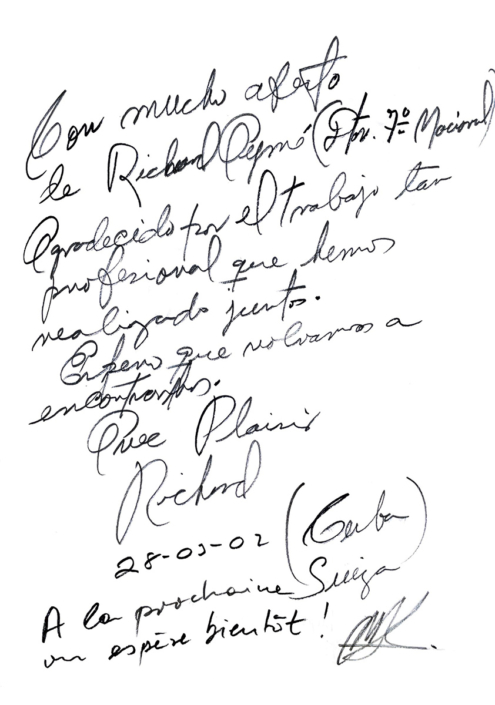 Con mucho afecto
de Richard Egmé (Dtor. 7º Nacional)
Agradecido por el trabajo tan
profesional que hemos
realizado juntos.
Espero que volvamos a
encontrarnos.
Avec Plaisir
Richard
28-05-02 (Cuba)
Suiza
A la prochaine
on espère bientôt !